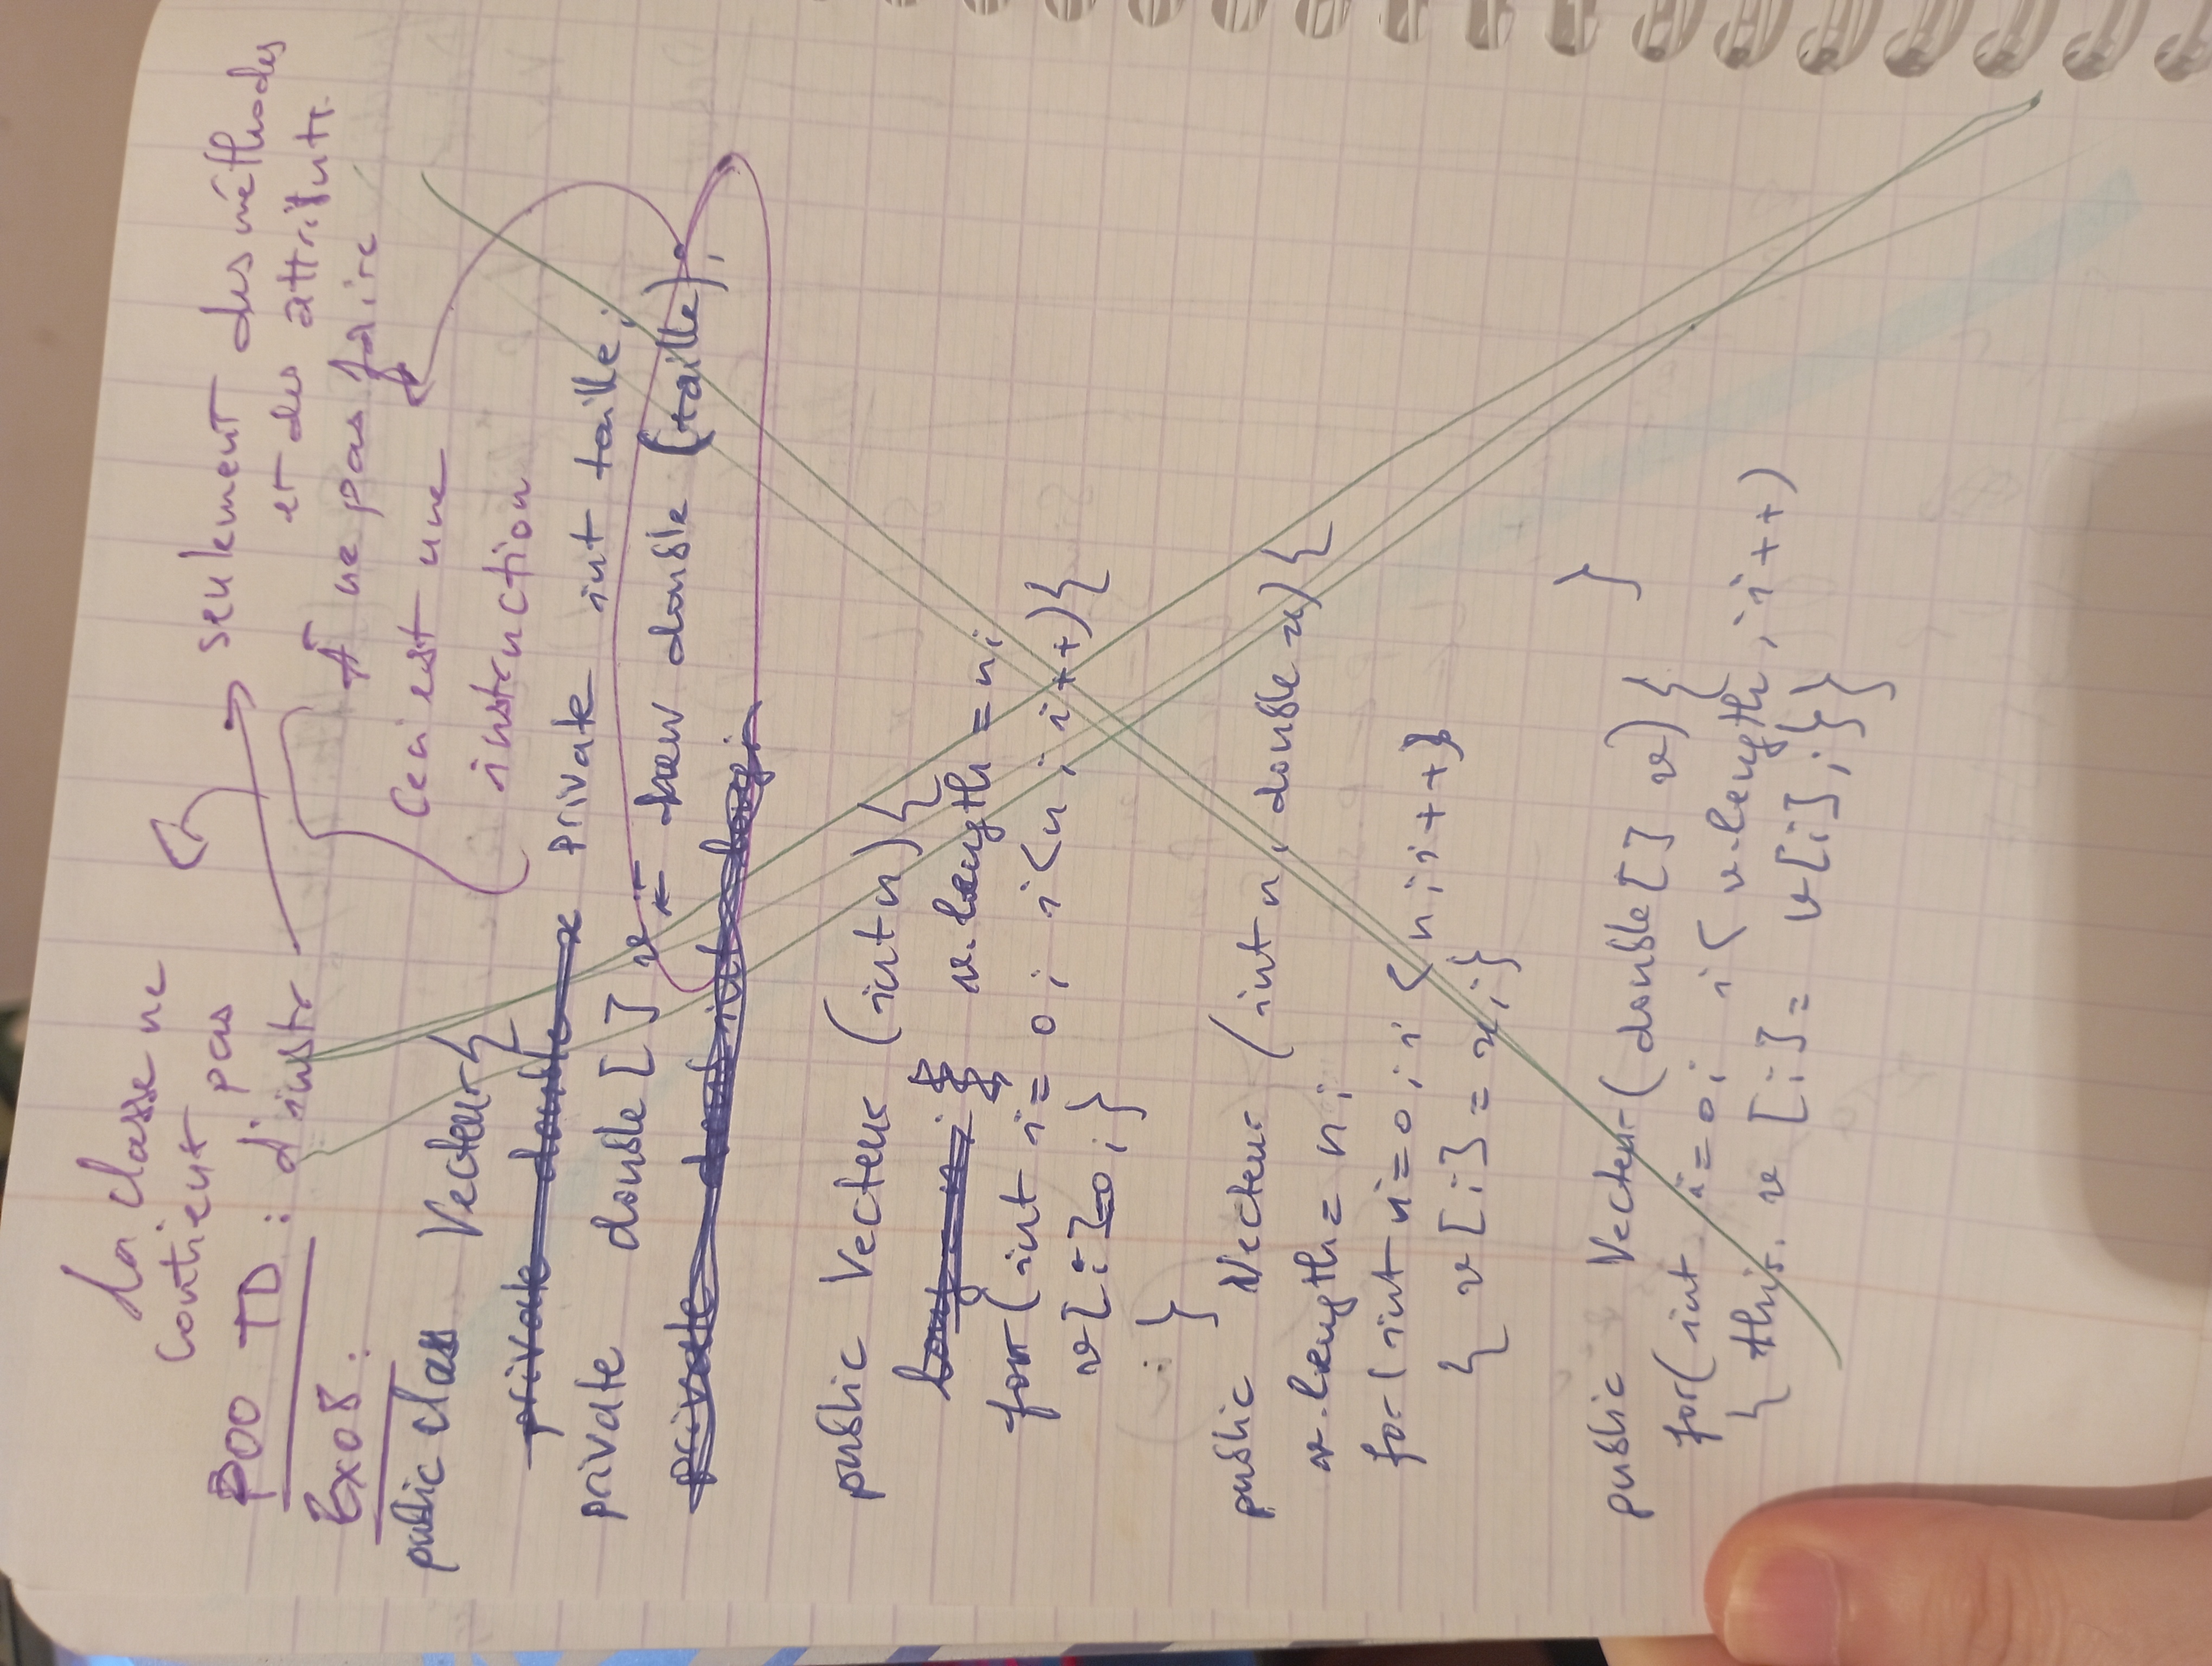 La classe ne
contient pas
POO TD : d'instr → seulement des méthodes
et des attributs
Exo 8 :
À ne pas faire
Ceci est une
instruction
public class Vecteur {
private double x private int taille;
private double [ ] v = new double (taille);
private double int longi
public Vecteur (int n) {
long = n; v.length = n;
for (int i = 0 ; i < n ; i++) {
v[i]=0 ; }
}
public Vecteur (int n, double x) {
v.length = n ;
for ( int i = 0 ; i < n ; i++)
{ v[i] = x ; }
}
public Vecteur (double [ ] v) {
for( int i = 0 ; i < v.length ; i++)
{ this. v [i] = v[i] ; } }